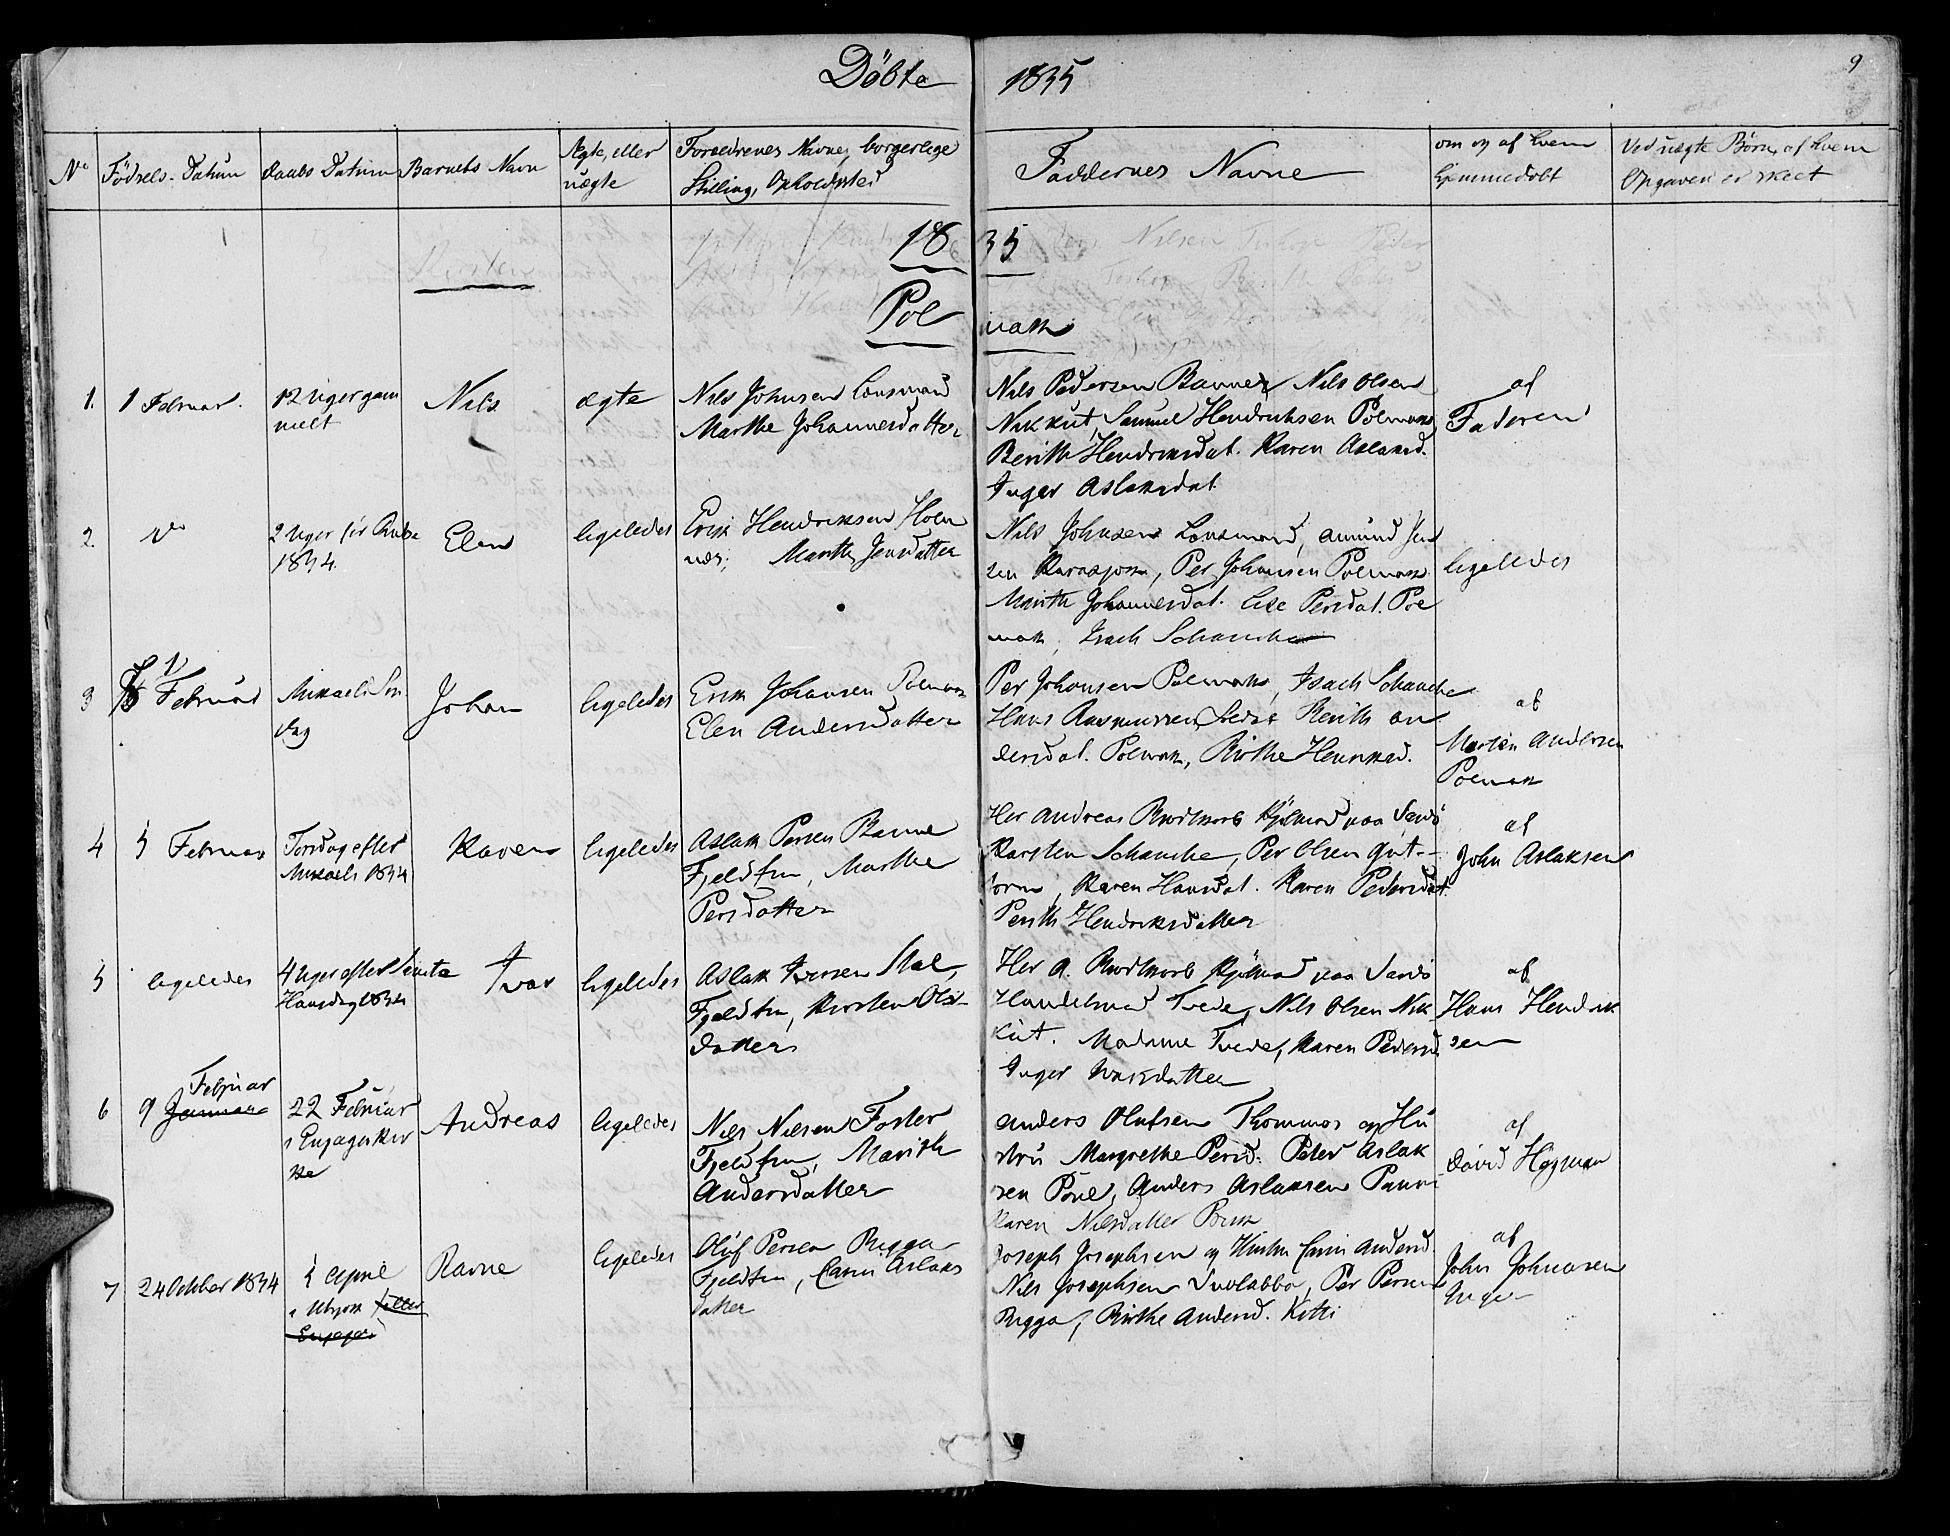 Döbte 1835
9
No
Födsels-Datum
Daabs Datum
Barnets Navn
Ægte, eller
uægte
Forældrenes Navne, borgerlige
Stilling, Opholdssted
Faddernes Navne
om og af hvem
hjemmedöbt
Ved uægte Børn, af hvem
Opgaven er skeet
1835
Polmak
1.
1 Februar.
12 Uger gam
melt
Nils
ægte
Nils Johnsen Lensmand
Marthe Johannesdatter
Nils Pedersen Banne, Nils Olsen
Nikkut, Samuel Hendriksen Polmak
Berith Hendriksdat. Karen Aslaksd.
Inger Aslaksdat.
af
Faderen
2.
do
2 Uger för
1834.
Elen
ligeledes
Erik Hendriksen Holm
næs, Marith Jensdatter
Nils Johnsen Lensmand, Amund Jen
sen Karasjok, Per Johansen Polmak
Marith Johannesdat. Lise Persdat. Pol
mak, Isach Schanche
ligeledes
3
1 Februar
Mikaeli Søn
dag
Johan
ligeledes
Erik Johansen Polmak
Elen Andersdatter
Per Johansen Polmak, Isach Schanche
Hans Rasmussen, Berith An
dersdat. Polmak, Birthe Henriksd.
af
Morten Andersen
Polmak
4
5 Februar
Torsdag efter
Mikaeli 1834
Karen
ligeledes
Aslak Persen Banne
Fjeldfin, Marthe
Persdatter
Her Andreas Brodtkorb Kjöbmand paa Vardö
Karsten Schanche, Per Olsen Gut-
torm, Karen Hansdat. Karen Pedersdat.
Berith Hendriksdatter
af
John Aslaksen
5
ligeledes
4 Uger efter Sancte
Hansdag 1834
Ivar
ligeledes
Aslak Iversen
Fjeldfin, Kirsten Ols-
datter
Her A. Brodtkorb Kjöbmand paa Vardö
Handelsmand Tvede, Nils Olsen Nik
kut. Madame Tvede, Karen Pedersd.
Inger Isaksdatter
af
Hans Hendrik
sen
6
9 Januar Februar
22 Februar
i
ke
Andreas
ligeledes
Nils Nilsen Foster
Fjeldfin, Marith
Andersdatter
Anders Olufsen Thommas og Hu
stru Margrethe Persd. Peder Aslak
sen, Anders Aslaksen
Karen Nilsdatter
af
David Hagman
7
24 October 1834
April
i Utsjok eller
Ravne
ligeledes
Oluf Persen Bigga
Fjeldfin, Aslaks
datter
Joseph Josephsen og Hustru Andersd.
Nils Josephsen, Per Persen
Bigga, Birthe Andersd. Kitti
af
John Johnsen